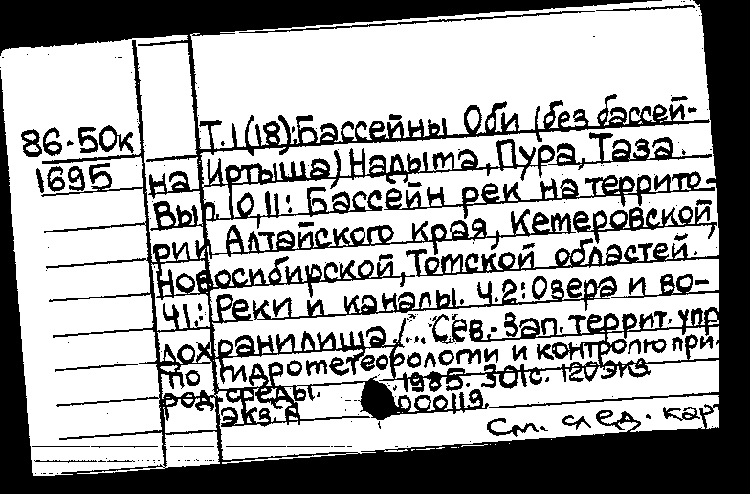 86-50к
1695
Т.1(18):Бассейны Оби (без бассей-
на Иртыша) Надыма, Пура, Таза.
Вып. 10,11: Бассейн рек на террито-
рии Алтайского края, Кемеровской,
Новосибирской, Томской областей.
Ч1.: Реки и каналы. Ч.2: Озера и во-
дохранилища /... Сев.-Зап. террит. упр
по гидрометеорологии и контролю при-
род. среды. 1985. 301с. 120экз
экз. А 000119.
См. след. карт